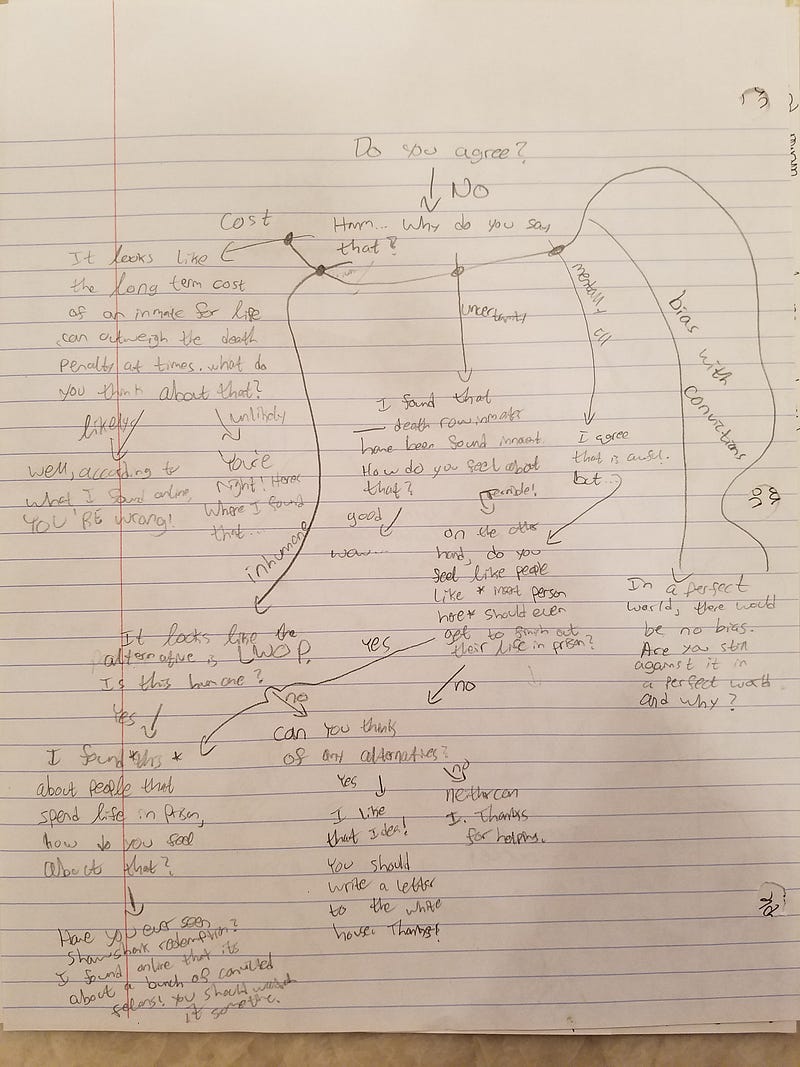 Do you agree?
No
Hmm... Why do you say
that?
Cost
It looks like
the long term cost
of an inmate for life
can outweigh the death
penalty at times. what do
you think about that?
likely
unlikely
well, according to
what I found online,
YOU'RE wrong!
You're
Right! Heres
Where I found
that...
inhumane
uncertainty
I found that
— death row inmates
have been found innocent.
How do you feel about
that?
good
wow...
terrible!
mentally ill
I agree
that is awful.
but...
on the other
hand, do you
feel like people
like *insert person
here* should even
get to finish out
their life in prison?
yes
no
bias with
convictions
In a perfect
world, there would
be no bias.
Are you still
against it in
a perfect world
and why?
It looks like the
alternative is LWOP.
Is this humane?
Yes
no
I found *this*
about people that
spend life in prison,
how do you feel
about that?
Have you ever seen
Shawshank redemption?
I found online that its
about a bunch of convicted
felons! You should watch
it sometime.
can you think
of any alternatives?
Yes
no
I like
that Idea!
You should
write a letter
to the white
house! Thanks!
neither can
I. Thanks
for helping.